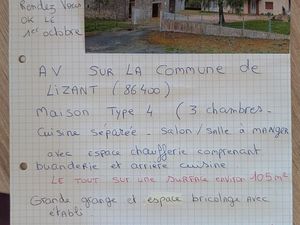 Rendez Vous
OK LE
1er octobre
AV SUR LA COMMUNE DE
LIZANT (86400)
MAISON TYPE 4 (3 chambres -
Cuisine séparée - salon/salle à MANGER
avec espace chaufferie comprenant
buanderie et arrière cuisine
LE TOUT SUR UNE SURFACE environ 105 m²
Grande grange et espace bricolage avec
établi